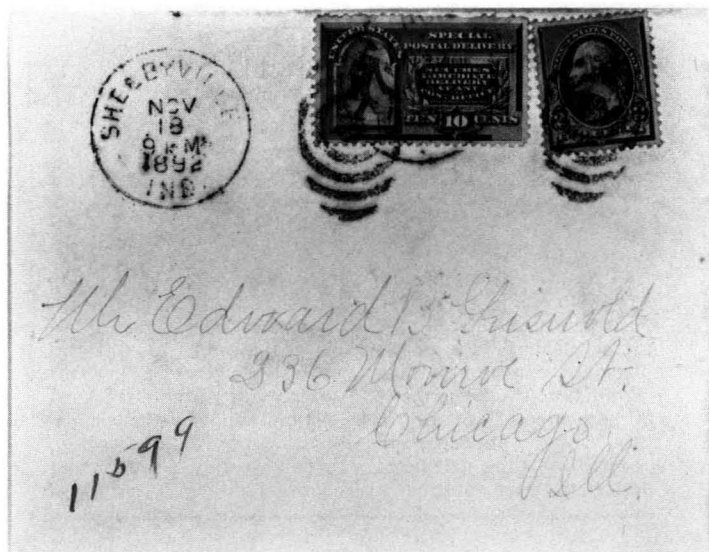 SHELBYVILLE
NOV
18
9 PM
1892
IND.
UNITED STATES
SPECIAL
POSTAL DELIVERY
TEN 10 CENTS
Mr Edward B. Griswold
236 Monroe St.
Chicago
Ill.
11599